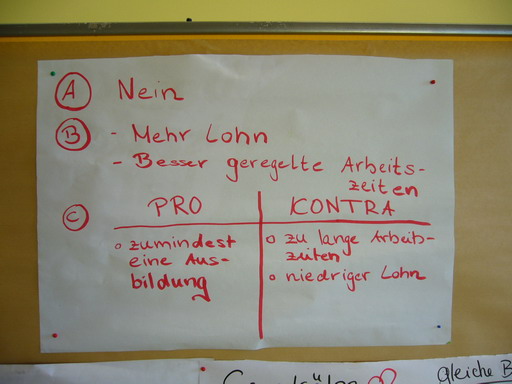 A Nein
B - Mehr Lohn
- Besser geregelte Arbeits-
zeiten
C PRO KONTRA
o zumindest
eine Aus-
bildung
o zu lange Arbeits-
zeiten
o niedriger Lohn
gleiche B